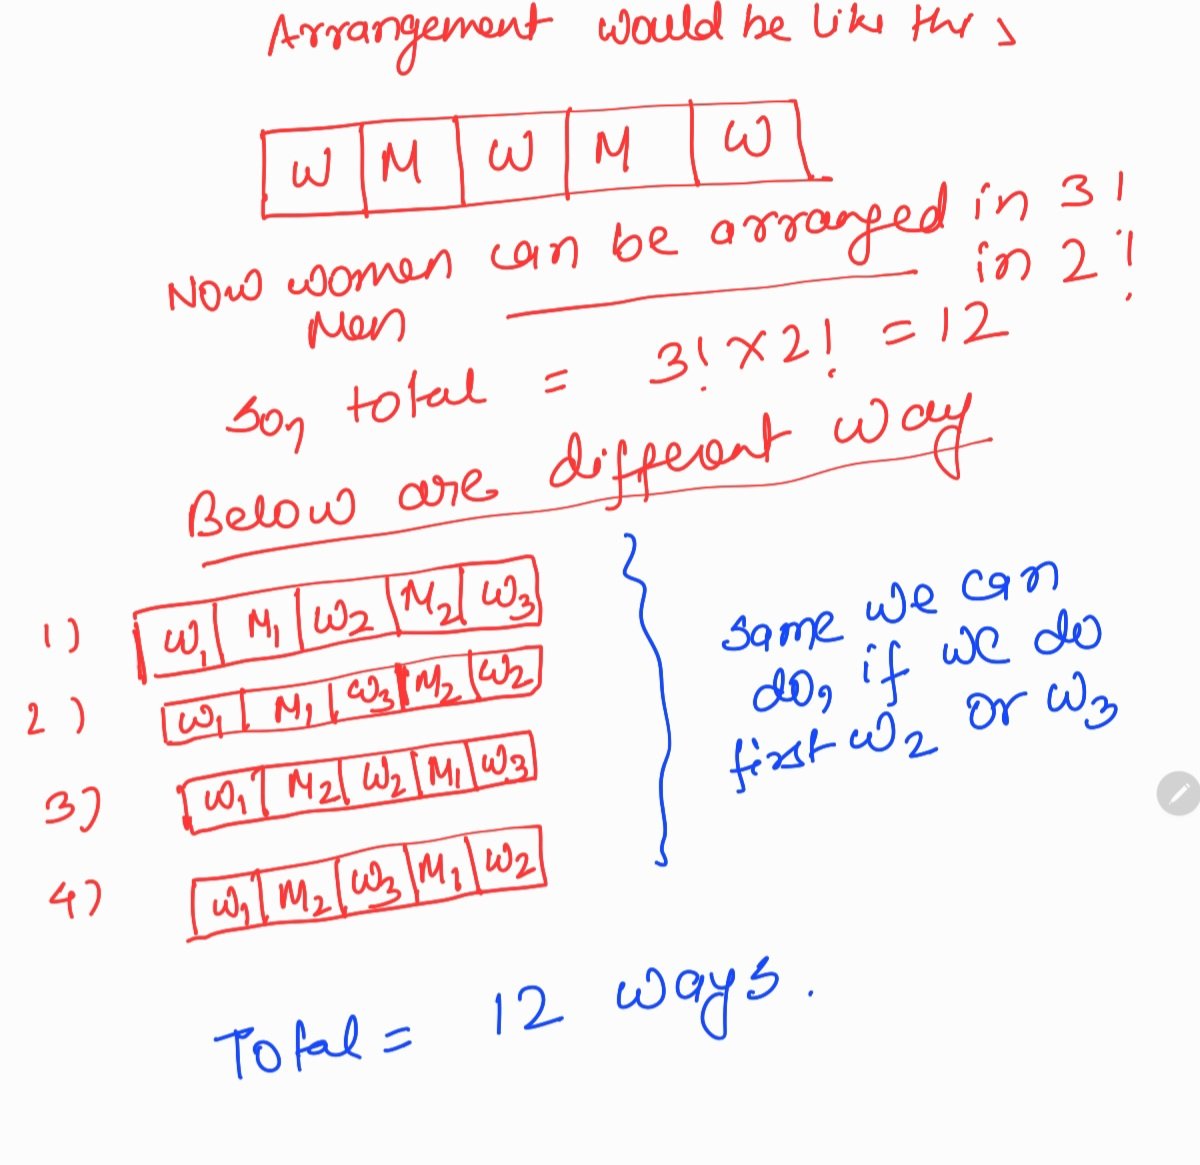 Arrangement would be like this
W M W M W
Now women can be arranged in 3!
Men in 2!
So, total = 3! × 2! = 12
Below are different way
1) W1 M1 W2 M2 W3
2) W1 M1 W3 M2 W2
3) W1 M2 W2 M1 W3
4) W1 M2 W3 M1 W2
same we can
do, if we do
first W2 or W3
Total = 12 ways.